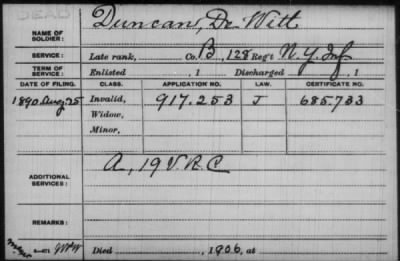 DEAD
NAME OF SOLDIER: Duncan, De Witt
SERVICE: Late rank, Co. B, 128 Reg't N.Y. Inf
TERM OF SERVICE: Enlisted , 1 Discharged , 1
DATE OF FILING. CLASS. APPLICATION NO. LAW. CERTIFICATE NO.
1890 Aug. 25 Invalid, 917.253 J 685.733
Widow,
Minor,
ADDITIONAL SERVICES: A, 19 V.R.C
REMARKS:
Died , 1906, at